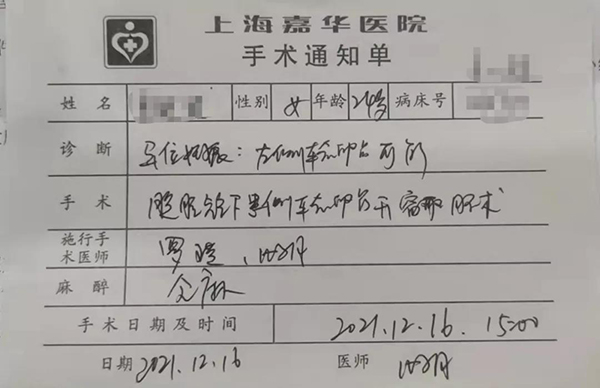 上海嘉华医院
手术通知单
姓名 性别 女 年龄 24岁 病床号
诊断 异位妊娠：左侧输卵管可能
手术 腹腔镜下患侧输卵管开窗取胚术
施行手术医师 罗
麻醉 全麻
手术日期及时间 2021.12.16. 15:00
日期 2021.12.16 医师